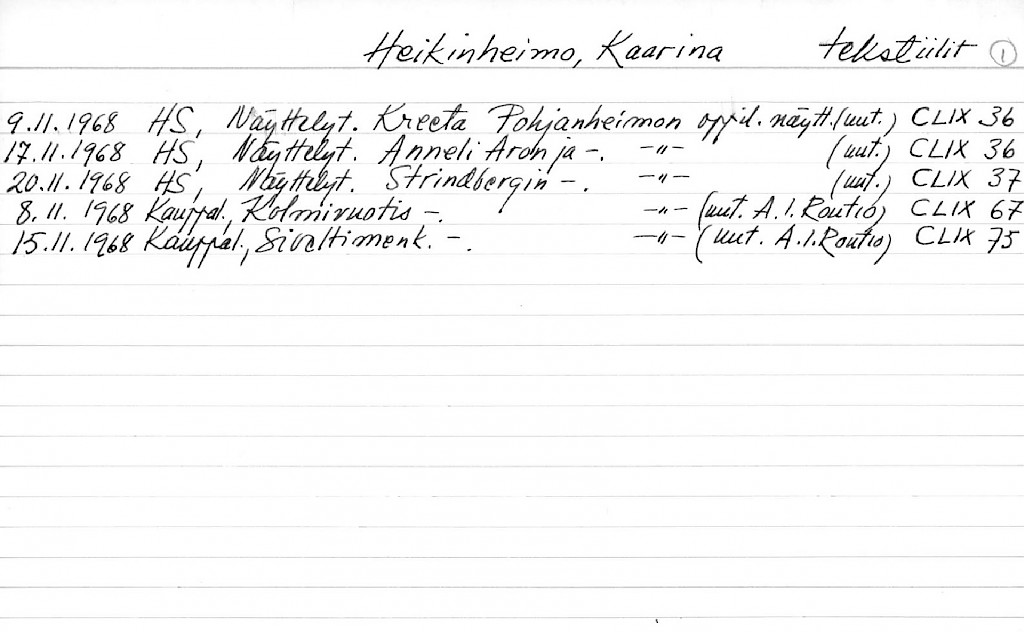 Heikinheimo, Kaarina tekstiilit 1
9.11.1968 HS, Näyttelyt. Kreeta Pohjanheimon oppil. näytt. (uut.) CLIX 36
17.11.1968 HS, Näyttelyt. Anneli Aron ja -. -"- (uut.) CLIX 36
20.11.1968 HS, Näyttelyt. Strindbergin -. -"- (uut.) CLIX 37
8.11.1968 Kauppal., Kolmivuotis -. -"- (uut. A.I. Routio) CLIX 67
15.11.1968 Kauppal., Siveltimenk. -. -"- (uut. A.I. Routio) CLIX 75